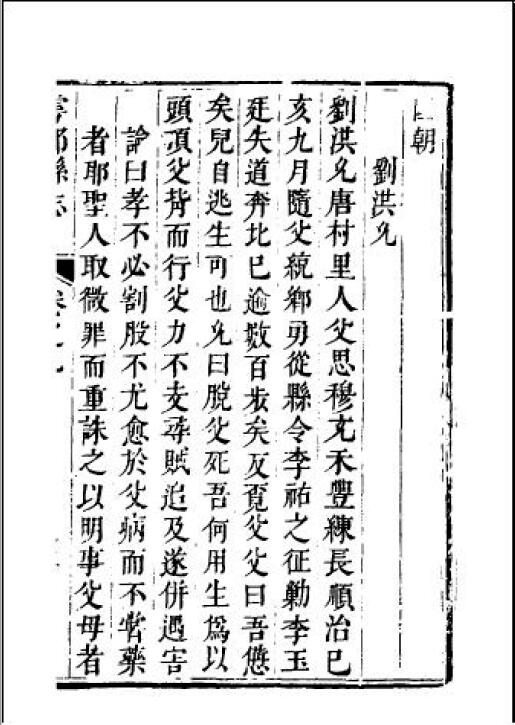 朝
劉洪允
劉洪允唐村里人父思穆充禾豐練長順治巳
亥九月隨父統鄉勇從縣令李祐之征勦李玉
廷失道奔北已逾數百步矣反覓父父曰吾憊
矣兒自逃生可也允曰脫父死吾何用生爲以
頭頂父背而行父力不支尋賊追及遂併遇害
論曰孝不必割股不尤愈於父病而不嘗藥
者耶聖人取微罪而重誅之以明事父母者
寧都縣志